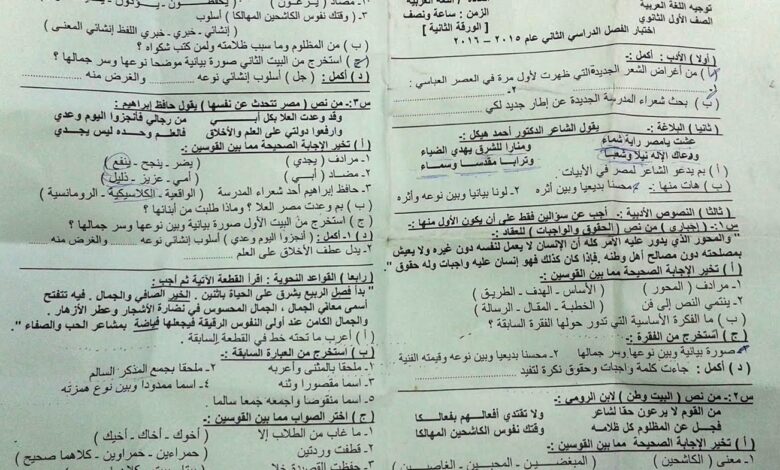 توجيه اللغة العربية
الصف الأول الثانوي
المادة : اللغة العربية
الزمن : ساعة ونصف
[ الورقة الثانية ]
اختبار الفصل الدراسي الثاني عام ٢٠١٥ – ٢٠١٦
( أولا ) الأدب : أكمل :-
( أ ) من أغراض الشعر الجديدة التي ظهرت لأول مرة في العصر العباسي :
١- ٢-
( ب ) بحث شعراء المدرسة الجديدة عن إطار جديد لكي
( ثانيا ) البلاغة : يقول الشاعر الدكتور أحمد هيكل :-
عشت يامصر راية شماء ومنارا للشرق يهدي الضياء
ووعاك الإله نيلا وشعبا وترابا مقدسا وسماء
( أ ) بم يدعو الشاعر لمصر في الأبيات
( ب ) هات منها :- ١- محسنا بديعيا وبين أثره ٢- لونا بيانيا وبين نوعه وأثره
( ثالثا ) النصوص الأدبية :- أجب عن سؤالين فقط على أن يكون الأول منها :-
س١:- (إجباري ) من نص ( الحقوق والواجبات ) للعقاد :-
" والمحور الذي يدور عليه الأمر كله أن الإنسان لا يعمل لنفسه دون غيره ولا يعيش
بمصلحته دون مصالح أهل وطنه .فإذا كان كذلك فهو إنسان عليه واجبات وله حقوق "
( أ ) تخير الإجابة الصحيحة مما بين القوسين :-
١- مرادف ( المحور ) ( الأساس - الهدف - الطريق )
٢- ينتمي النص إلى فن ( الخطبة - المقال - الرسالة )
( ب ) ما الفكرة الأساسية التي تدور حولها الفقرة السابقة ؟
( ج ) أستخرج من الفقرة :-
صورة بيانية وبين نوعها وسر جمالها ٢- محسنا بديعيا وبين نوعه وقيمته الفنية
( د ) أكمل : جاءت كلمة واجبات وحقوق نكرة لتفيد
س٢:- من نص ( البيت وطن ) لابن الرومي :-
من القوم لا يرعون حقا لشاعر ولا تقتدي أفعالهم بفعالكا
فجل عن المظلوم كل ظلامه وقتك نفوس الكاشحين المهالكا
( أ ) تخير الإجابة الصحيحة مما بين القوسين :-
١- معنى ( الكاشحين ) ( المبغضين - المحبين - الغاصبين )
٢- مضاد ( يرعون )
٣- ( وقتك نفوس الكاشحين المهالكا ) أسلوب
( إنشائي - خبري - خبري اللفظ إنشائي المعنى )
( ب ) من المظلوم وما سبب ظلامته ولمن كتب شكواه ؟
( ج ) استخرج من البيت الثاني صورة بيانية موضحا نوعها وسر جمالها ؟
( د ) أكمل : ( جل ) أسلوب إنشائي نوعه والغرض منه
س٣:- من نص ( مصر تتحدث عن نفسها ) يقول حافظ إبراهيم :-
وقد وعدت العلا بكل أبي من رجالي فأنجزوا اليوم وعدي
وارفعوا دولتي على العلم والأخلاق فالعلم وحده ليس يجدي
( أ ) تخير الإجابة الصحيحة مما بين القوسين :-
١- مرادف ( يجدي ) ( يضر - ينجح - ينفع )
٢- مضاد ( أبي ) ( أمي - عزيز - ذليل )
٣- حافظ إبراهيم أحد شعراء المدرسة ( الواقعية - الكلاسيكية - الرومانسية )
( ب ) بم وعدت مصر العلا ؟ وماذا طلبت من أبنائها ؟
( ج ) استخرج من البيت الأول صورة بيانية وبين نوعها وسر جمالها ؟
( د ) ١- أكمل : ( أنجزوا اليوم وعدي ) أسلوب إنشائي نوعه والغرض منه
٢- يدل عطف الأخلاق على العلم
( رابعا ) القواعد النحوية : اقرأ القطعة الآتية ثم أجب :-
" بدأ فصل الربيع يشرق على الحياة باثنين . الخير الصافي والجمال . فيه تتفتح
أسمى معاني الجمال ، الجمال المحسوس في نضارة الأشجار وعطر الأزهار .
والجمال الكامن عند أولى النفوس الرقيقة فيجعلها فياضة بمشاعر الحب والصفاء " .
( أ ) أعرب ما تحته خط في القطعة السابقة ؟
( ب ) استخرج من العبارة السابقة :-
١- ملحقا بالمثنى وأعربه ٢- ملحقا بجمع المذكر السالم
٣- اسما مقصورا وثنه ٤- اسما ممدودا وبين نوع همزته
٥- اسما منقوصا واجمعه جمعا سالما
( ج ) اختر الصواب مما بين القوسين :-
١- ما غاب من الطلاب إلا ( أخوك - أخاك - أخيك )
٢- قطفت وردتين ( حمراءين - حمراوين - كلاهما صحيح )
٣- حفظت القصيدة خلا